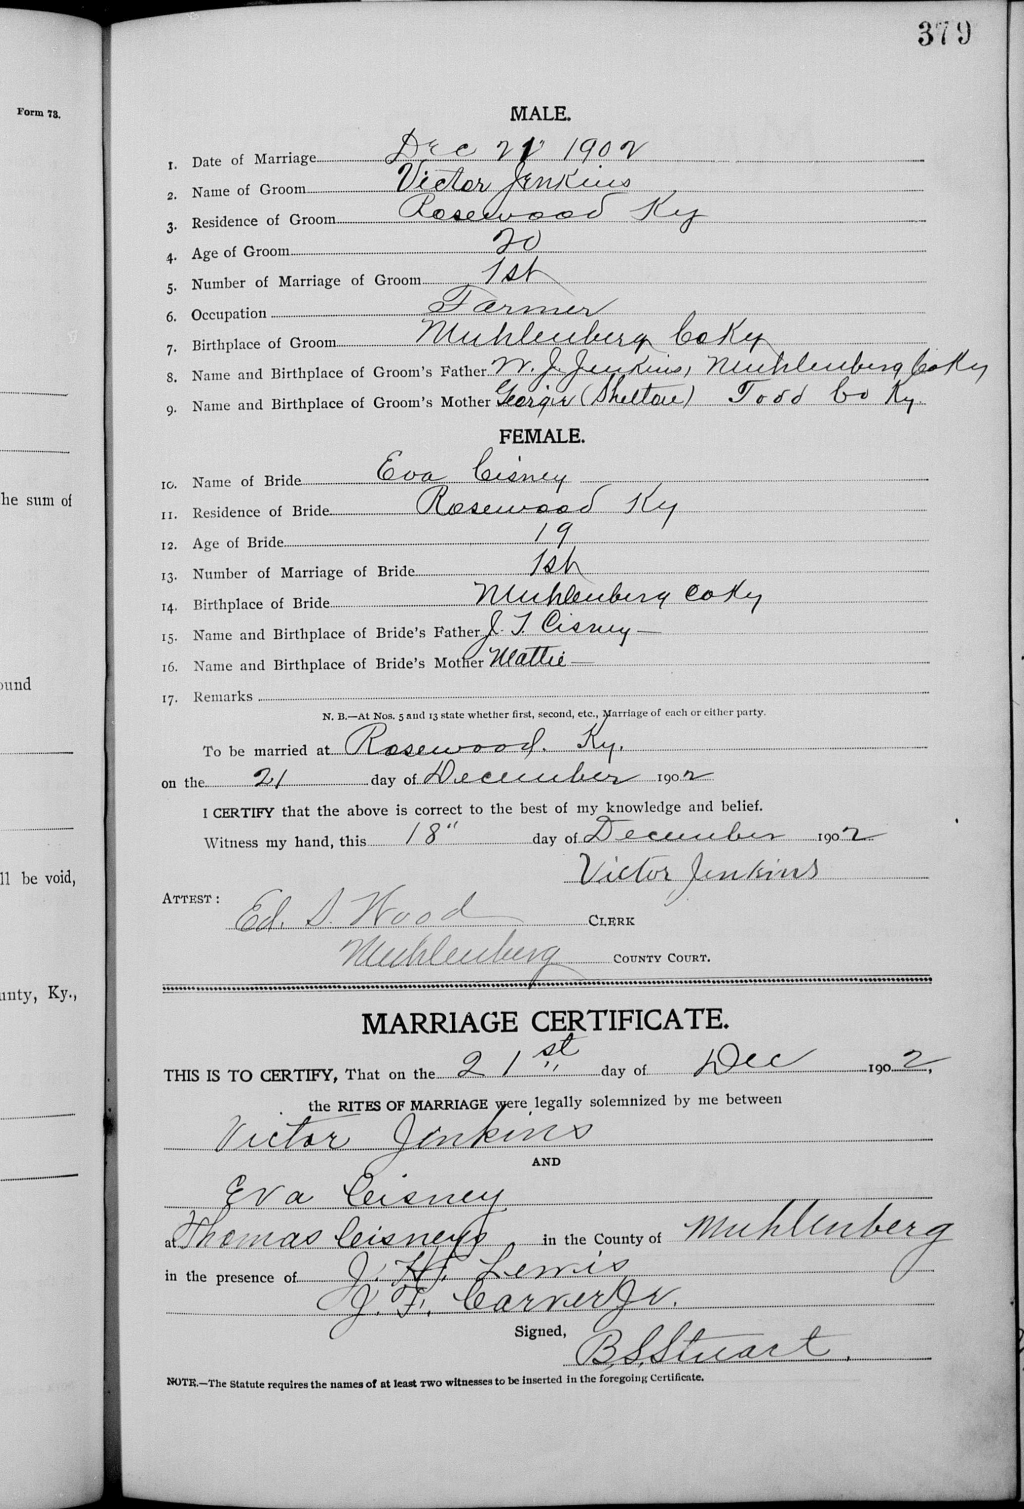 379
Form 73.
MALE.
1. Date of Marriage Dec 21 1902
2. Name of Groom Victor Jenkins
3. Residence of Groom Rosewood Ky
4. Age of Groom 20
5. Number of Marriage of Groom 1st
6. Occupation Farmer
7. Birthplace of Groom Muhlenberg Co Ky
8. Name and Birthplace of Groom's Father W. J. Jenkins, Muhlenberg Co Ky
9. Name and Birthplace of Groom's Mother Georgie (Shelton) Todd Co Ky.
FEMALE.
10. Name of Bride Eva Cisney
he sum of
11. Residence of Bride Rosewood Ky
12. Age of Bride 19
13. Number of Marriage of Bride 1st
14. Birthplace of Bride Muhlenberg Co Ky
15. Name and Birthplace of Bride's Father J. T. Cisney —
16. Name and Birthplace of Bride's Mother Mattie —
ound
17. Remarks
N. B.—At Nos. 5 and 13 state whether first, second, etc., Marriage of each or either party.
To be married at Rosewood. Ky.
on the 21 day of December 1902
I CERTIFY that the above is correct to the best of my knowledge and belief.
Witness my hand, this 18" day of December 1902
Victor Jenkins
ll be void,
ATTEST:
Ed. S. Wood CLERK
Muhlenberg COUNTY COURT.
unty, Ky.,
MARRIAGE CERTIFICATE.
THIS IS TO CERTIFY, That on the 21st day of Dec 1902,
the RITES OF MARRIAGE were legally solemnized by me between
Victor Jenkins
AND
Eva Cisney
at Thomas Cisneys in the County of Muhlenberg
in the presence of J. H. Lewis
J. F. Carver Jr.
Signed,
B. S. Stuart.
NOTE.—The Statute requires the names of at least TWO witnesses to be inserted in the foregoing Certificate.